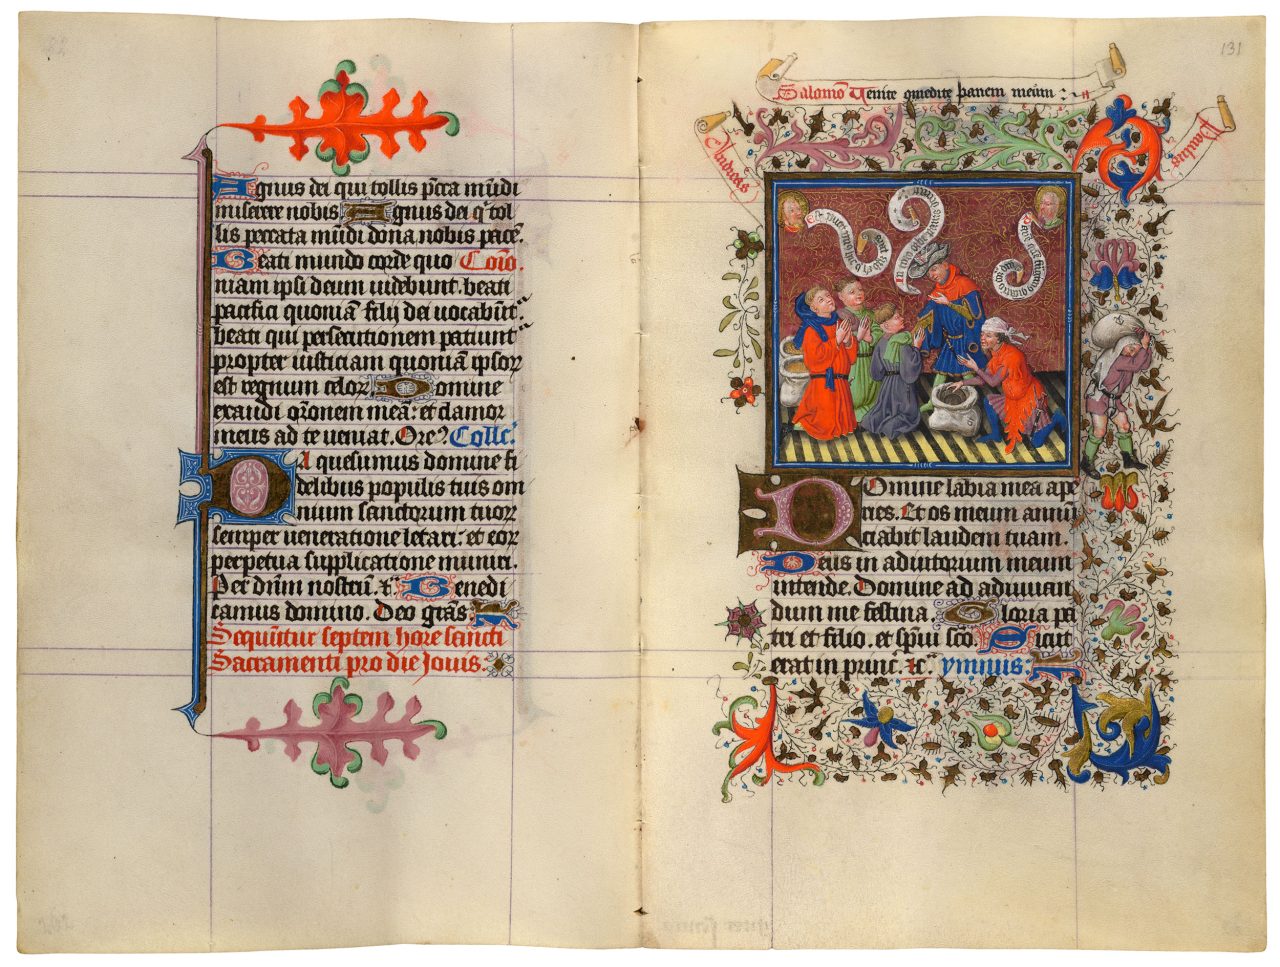 Agnus dei qui tollis pcca mūdi
miserere nobis Agnus dei q tol
lis peccata mūdi dona nobis pacē.
Beati mundo corde quo Cōīo.
niam ipsi deum uidebunt. beati
pacifici quoniā filij dei uocabūt:
beati qui persecutionem patiunt
propter iusticiam quoniā ipsoꝝ
est regnum celoꝝ Domine
exaudi orōnem meā: et clamor
meus ad te ueniat. Ore? Collc̄.
Da quesumus domine fi
delibus populis tuis om
nium sanctorum tuoꝝ
semper ueneratione letari: et eoꝝ
perpetua supplicatione muniri.
Per dn̄m nostrū. xc̄ Benedi
camus domino. Deo grās
Sequūtur septem hore sancti
Sacramenti pro die Jouis:
131
Salomō Venite comedite panem meum:
Andreas
Paulus
Domine labia mea ape
ries. Et os meum annū
ciabit laudem tuam.
Deus in adiutorium meum
intende. Domine ad adiuuan
dum me festina Gloria pa
tri et filio. et spūi scō. Sicut
erat in princ̄. xc̄ ymnus: